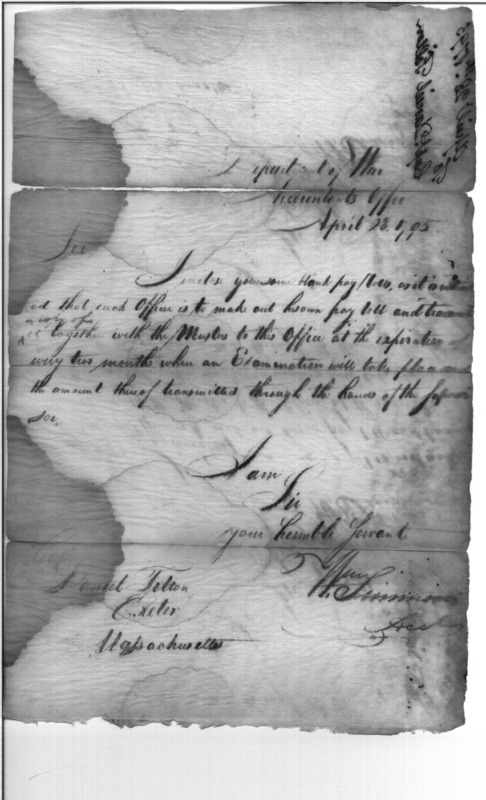 Department of War
Accountants Office
April 28. 1795
Sir
I enclose you some blank pay rolls, as it is
ed that each Officer is to make out his own pay roll and
a copy of
it together with the Musters to this Office at the expiration
every two months when an Examination will take place
the amount thereof transmitted through the hands of the
sor,
I am
Sir
your humble Servant
Wm Simmons
Daniel Tilton
Exeter
Massachusetts